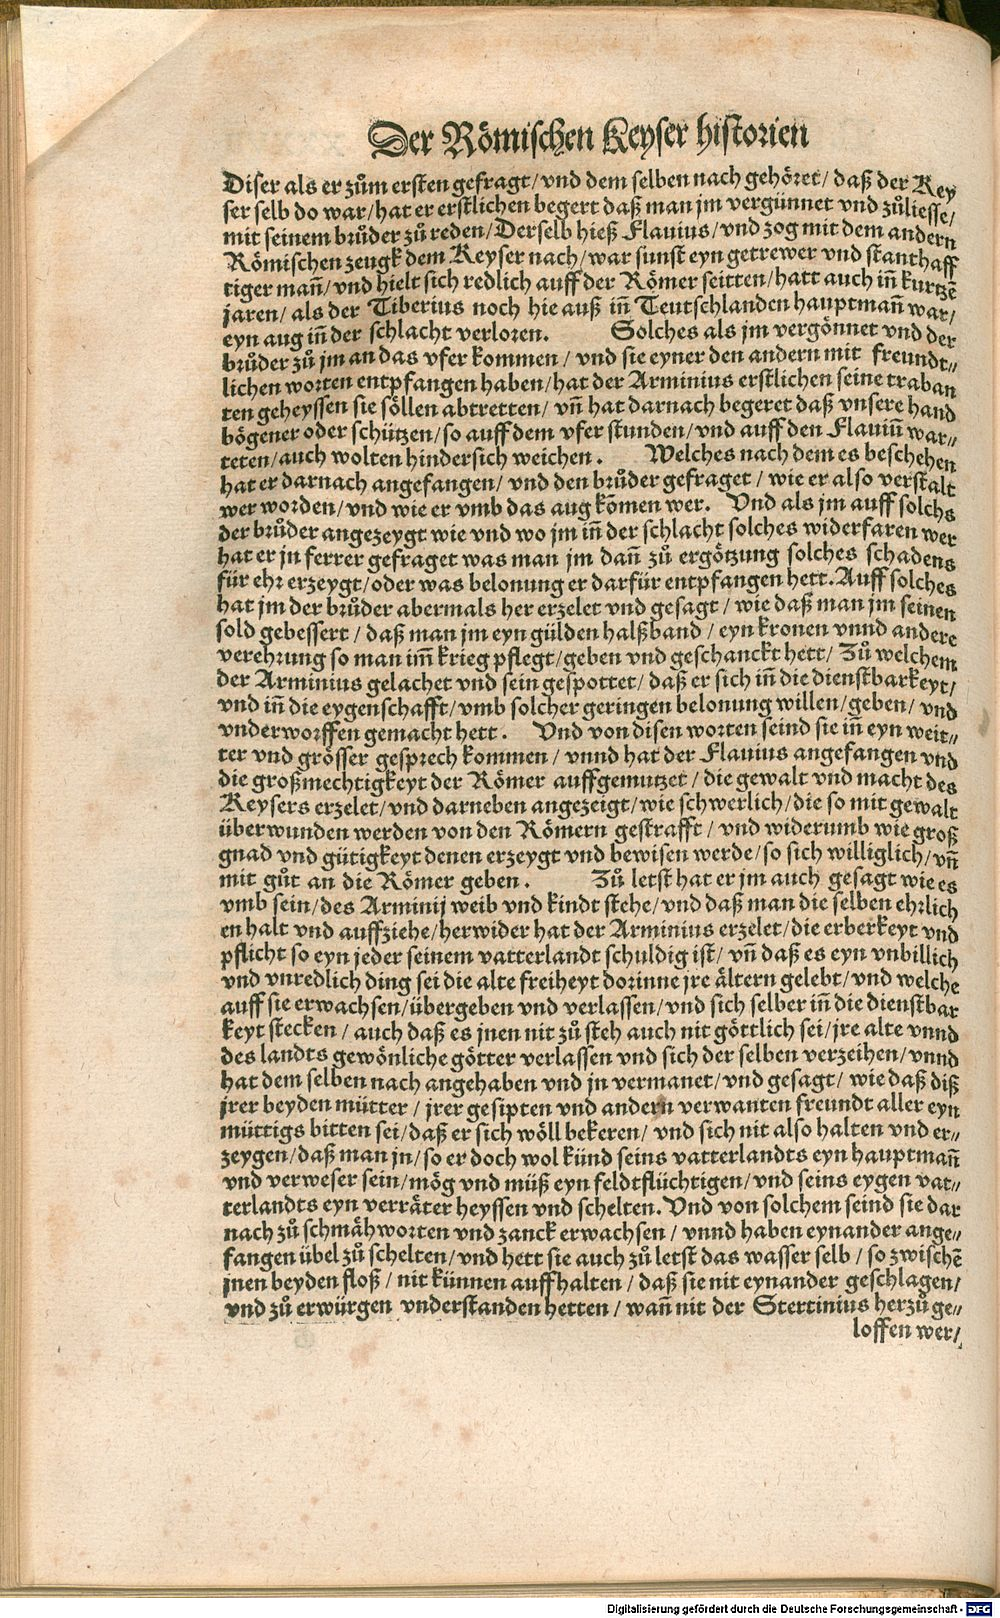 Der Römischen Keyser historien
Diser als er zům ersten gefragt/ vnd dem selben nach gehöret/ daß der Key
ser selb do war/ hat er erstlichen begert daß man jm vergünnet vnd zůliesse/
mit seinem brůder zů reden/ Derselb hieß Flauius/ vnd zog mit dem andern
Römischen zeugk dem Keyser nach/ war sunst eyn getrewer vnd stanthaff
tiger mañ/ vnd hielt sich redlich auff der Römer seitten/ hatt auch iñ kurtzẽ
jaren/ als der Tiberius noch hie auß iñ Teutschlanden hauptmañ war/
eyn aug iñ der schlacht verloren. Solches als jm vergönnet vnd der
brůder zů jm an das vfer kommen/ vnd sie eyner den andern mit freundt⸗
lichen worten entpfangen haben/ hat der Arminius erstlichen seine traban
ten geheyssen sie söllen abtretten/ vñ hat darnach begeret daß vnsere hand
bögener oder schützen/ so auff dem vfer stunden/ vnd auff den Flauiũ war⸗
teten/ auch wolten hindersich weichen. Welches nach dem es beschehen
hat er darnach angefangen/ vnd den brůder gefraget/ wie er also verstalt
wer worden/ vnd wie er vmb das aug kõmen wer. Vnd als jm auff solchs
der brůder angezeygt wie vnd wo jm iñ der schlacht solches widerfaren wer
hat er jn ferrer gefraget was man jm dañ zů ergötzung solches schadens
für ehr erzeygt/ oder was belonung er darfür entpfangen hett. Auff solches
hat jm der brůder abermals her erzelet vnd gesagt/ wie daß man jm seinen
sold gebessert/ daß man jm eyn gülden halßband/ eyn kronen vnnd andere
verehrung so man im̃ krieg pflegt/ geben vnd geschanckt hett/ Zů welchem
der Arminius gelachet vnd sein gespottet/ daß er sich iñ die dienstbarkeyt/
vnd iñ die eygenschafft/ vmb solcher geringen belonung willen/ geben/ vnd
vnderworffen gemacht hett. Vnd von disen worten seind sie iñ eyn weit⸗
ter vnd grösser gesprech kommen/ vnnd hat der Flauius angefangen vnd
die großmechtigkeyt der Römer auffgemutzet/ die gewalt vnd macht des
Keysers erzelet/ vnd darneben angezeigt/ wie schwerlich/ die so mit gewalt
überwunden werden von den Römern gestrafft/ vnd widerumb wie groß
gnad vnd gütigkeyt denen erzeygt vnd bewisen werde/ so sich williglich/ vñ
mit gůt an die Römer geben. Zů letst hat er jm auch gesagt wie es
vmb sein/ des Arminij weib vnd kindt stehe/ vnd daß man die selben ehrlich
en halt vnd auffziehe/ herwider hat der Arminius erzelet/ die erberkeyt vnd
pflicht so eyn jeder seinem vatterlandt schuldig ist/ vñ daß es eyn vnbillich
vnd vnredlich ding sei die alte freiheyt dorinne jre ältern gelebt/ vnd welche
auff sie erwachsen/ übergeben vnd verlassen/ vnd sich selber iñ die dienstbar
keyt stecken/ auch daß es jnen nit zů steh auch nit göttlich sei/ jre alte vnnd
des landts gewönliche götter verlassen vnd sich der selben verzeihen/ vnnd
hat dem selben nach angehaben vnd jn vermanet/ vnd gesagt/ wie daß diß
jrer beyden mütter/ jrer gesipten vnd andern verwanten freundt aller eyn
müttigs bitten sei/ daß er sich wöll bekeren/ vnd sich nit also halten vnd er⸗
zeygen/ daß man jn/ so er doch wol künd seins vatterlandts eyn hauptmañ
vnd verweser sein/ mög vnd müß eyn feldtflüchtigen/ vnd seins eygen vat⸗
terlandts eyn verräter heyssen vnd schelten. Vnd von solchem seind sie dar
nach zů schmähworten vnd zanck erwachsen/ vnnd haben eynander ange⸗
fangen übel zů schelten/ vnd hett sie auch zů letst das wasser selb/ so zwischẽ
jnen beyden floß/ nit künnen auffhalten/ daß sie nit eynander geschlagen/
vnd zů erwürgen vnderstanden hetten/ wañ nit der Stertinius herzů ge⸗
loffen wer/
Digitalisierung gefördert durch die Deutsche Forschungsgemeinschaft - DFG